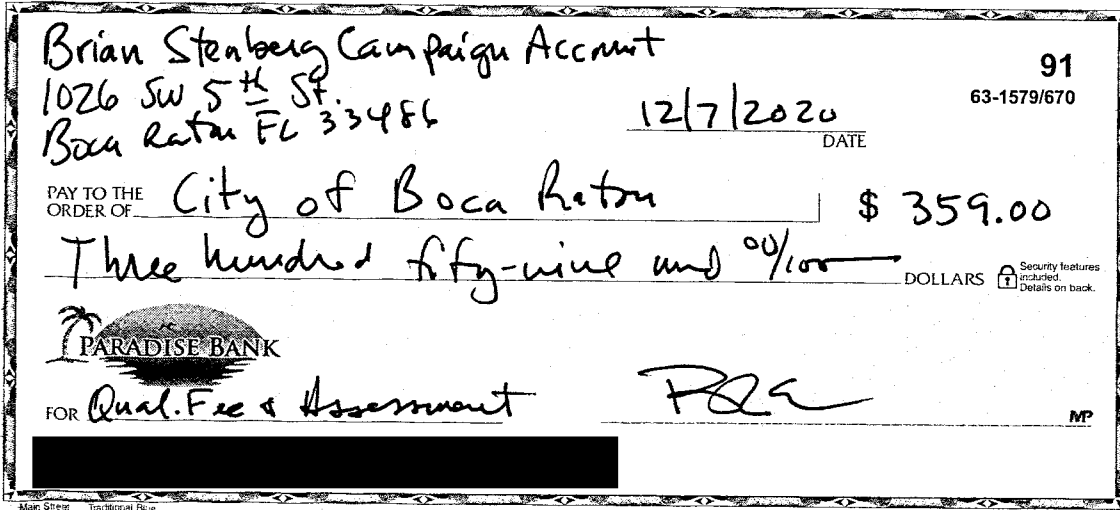 Brian Stenberg Campaign Account
91
1026 SW 5th St.
63-1579/670
Boca Raton FL 33486
12/7/2020
DATE
PAY TO THE ORDER OF City of Boca Raton $ 359.00
Three hundred fifty-nine and 00/100 DOLLARS
Security features included. Details on back.
PARADISE BANK
FOR Qual. Fee & Assessment
MP
Main Street Traditional Blue